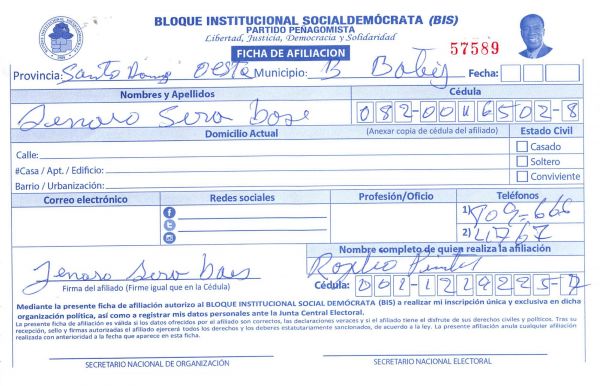 BLOQUE INSTITUCIONAL SOCIALDEMÓCRATA (BIS)
PARTIDO PEÑAGOMISTA
Libertad, Justicia, Democracia y Solidaridad
FICHA DE AFILIACION
57589
Provincia: Santo Domg Oeste Municipio: B Fecha:
Nombres y Apellidos
Cédula
Jenaro Sero
Domicilio Actual
(Anexar copia de cédula del afiliado)
Estado Civil
Calle:
Casado
#Casa / Apt. / Edificio:
Soltero
Barrio / Urbanización:
Conviviente
Correo electrónico
Redes sociales
Profesión/Oficio
Teléfonos
1) 809-666
2) 4767
Nombre completo de quien realiza la afiliación
Jenaro Sero
Firma del afiliado (Firme igual que en la Cédula)
Cédula: 001-1219225-7
Mediante la presente ficha de afiliación autorizo al BLOQUE INSTITUCIONAL SOCIAL DEMÓCRATA (BIS) a realizar mi inscripción única y exclusiva en dicha
organización política, así como a registrar mis datos personales ante la Junta Central Electoral.
La presente ficha de afiliación es válida si los datos ofrecidos por el afiliado son correctos, las declaraciones veraces y si el afiliado tiene el disfrute de sus derechos civiles y políticos. Tras su
recepción, sello y firmas autorizadas el afiliado ejercerá todos los derechos y los deberes estatutariamente sancionados, de acuerdo a la ley. La presente afiliación anula cualquier afiliación
realizada con anterioridad a la fecha que aparece en esta ficha.
SECRETARIO NACIONAL DE ORGANIZACIÓN
SECRETARIO NACIONAL ELECTORAL